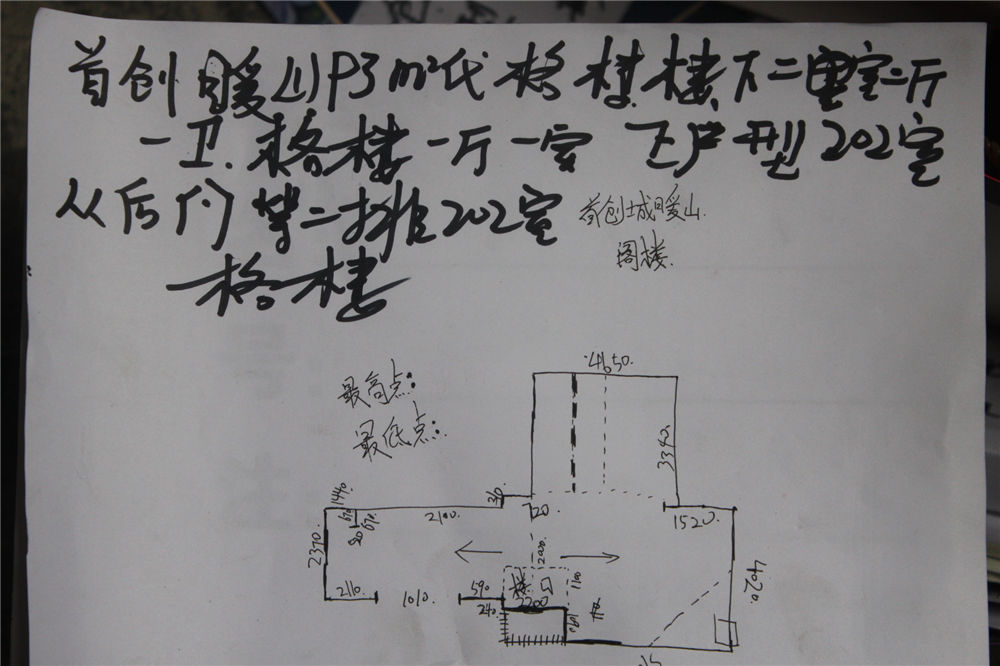 首创暖山P3m²代格楼楼下二室二厅
一卫.格楼一厅一室 下户型202室
从后门第二排202室
首创城暖山.
阁楼.
格楼
4650.
最高点:
最低点:
3390.
1440.
2100.
720.
1520.
670.
2370.
2000.
4020.
楼口
1100
210.
1010.
590
240
2200